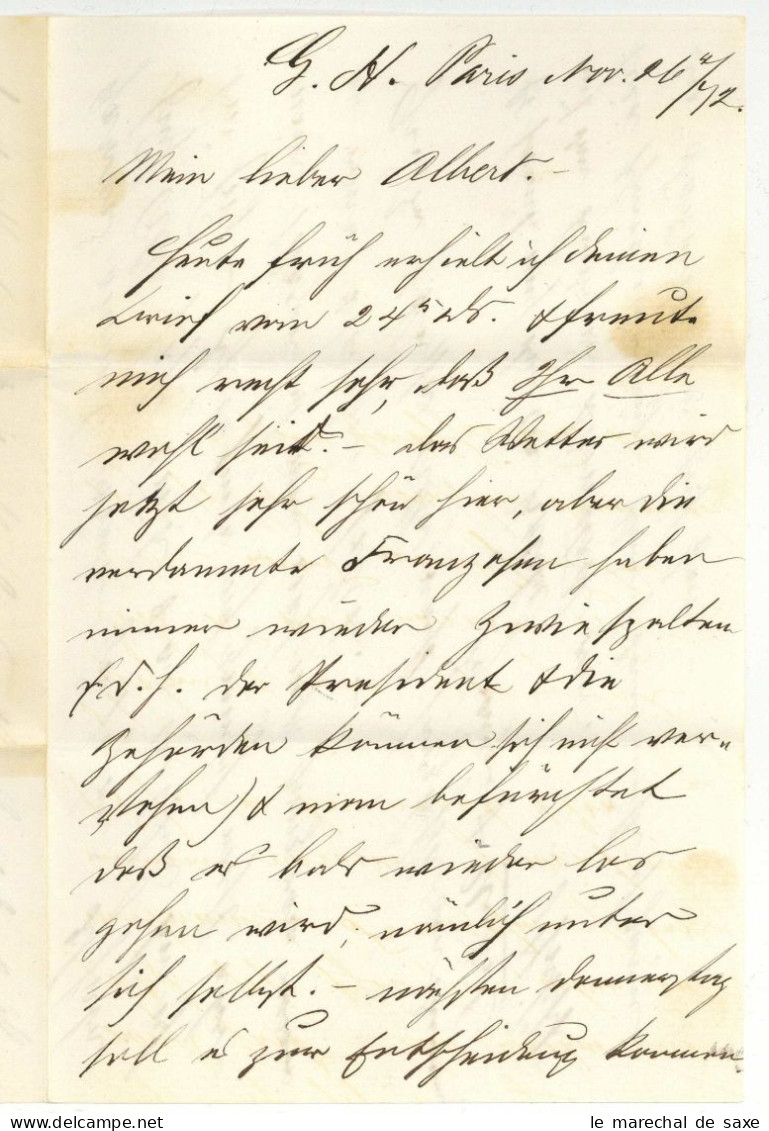 G. H. Paris Nov. 26 4/72.
Mein lieber Albert. –
Heute früh erhielt ich deinen
Brief vom 24t ds. & freut
mich recht sehr, daß Ihr Alle
wohl seid. – das Wetter wird
jetzt sehr schön hier, aber die
verdammte Franzosen haben
immer wieder Zwiespalten
(d. h. der President & die
Behörden können sich nicht ver„
stehen) & man befürchtet
daß es bald wieder los
gehen wird, nämlich unter
sich selbst. – nächsten Donnerstag
soll es zur Entscheidung kommen.
le marechal de saxe